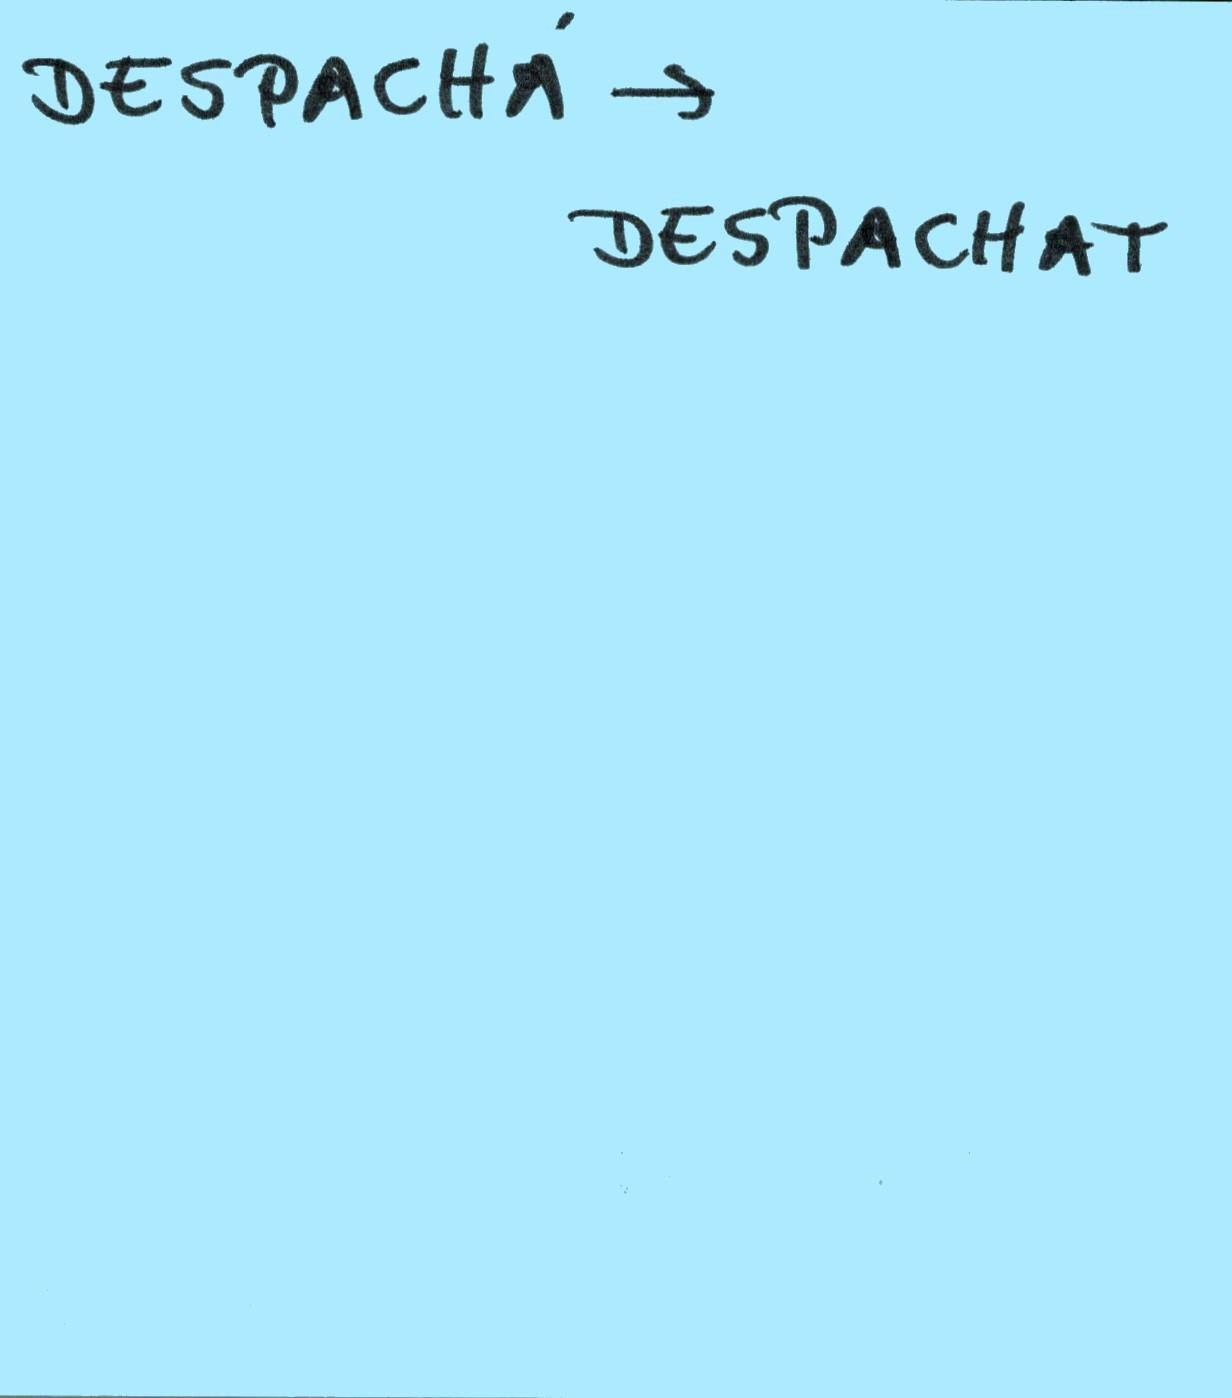 DESPACHÁ →
DESPACHAT